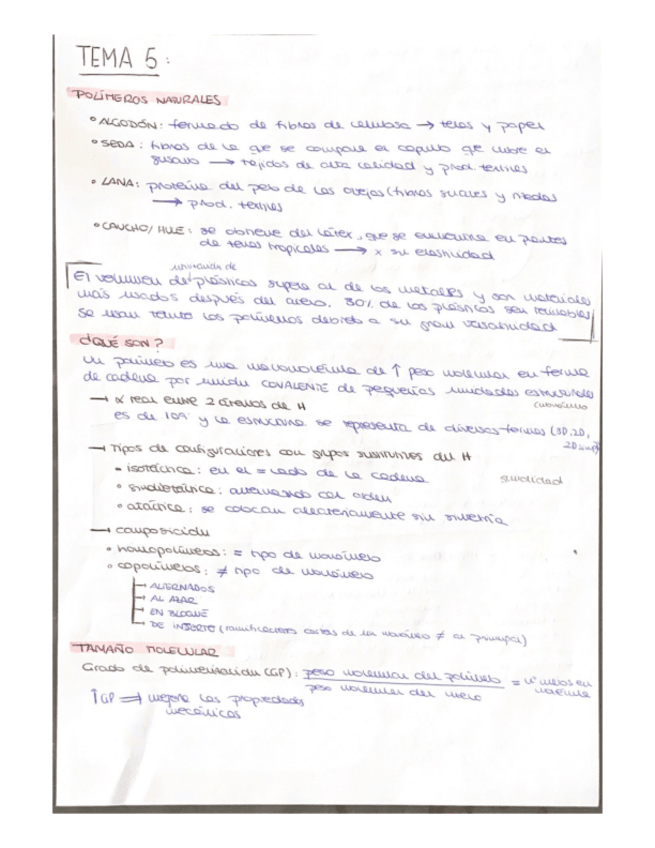 TEMA 5:
POLÍMEROS NATURALES
° ALGODÓN: formado de fibras de celulosa → telas y papel
° SEDA: fibras de la que se compone el capullo que cubre el
gusano → tejidos de alta calidad y prod. textiles
• LANA: proteína del pelo de las ovejas (fibras suaves y
→ prod. textiles
• CAUCHO/HULE: se obtiene del látex, que se encuentra en plantas
de tierras tropicales → x su elasticidad
utilización de
El volumen de plásticos supera al de los metales y son materiales
más usados después del acero. 30% de los plásticos son
Se usan tanto los polímeros debido a su gran versatilidad
¿QUÉ SON?
Un polímero es una macromolécula de ↑ peso molecular en forma
de cadena por unión COVALENTE de pequeñas unidades estructurales
(monómero
→ α real entre 2 átomos de H
es de 109° y la estructura se representa de diversas formas (3D, 2D,
2D simp
→ Tipos de configuraciones con grupos sustitutivos del H
isotáctica: en el = lado de la cadena
° sindiotáctica: alternando con orden
° atáctica: se colocan aleatoriamente sin simetría
→ composición
° homopolímeros: = tipo de monómero
° copolímeros: ≠ tipo de monómero
→ ALTERNADOS
→ AL AZAR
→ EN BLOQUE
→ DE INJERTO (ramificaciones cortas de un monómero ≠ al principal)
TAMAÑO MOLECULAR
Grado de polimerización (GP): peso molecular del polímero = nº meros en
peso molecular del mero molécula
↑GP ⇒ mejora las propiedades
mecánicas